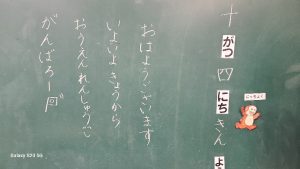 十がつ四にちきんよ
にっちょく
おはようございます
いよいよきょうから
おうえんれんしゅうで
がんばろー
Galaxy S20 5G